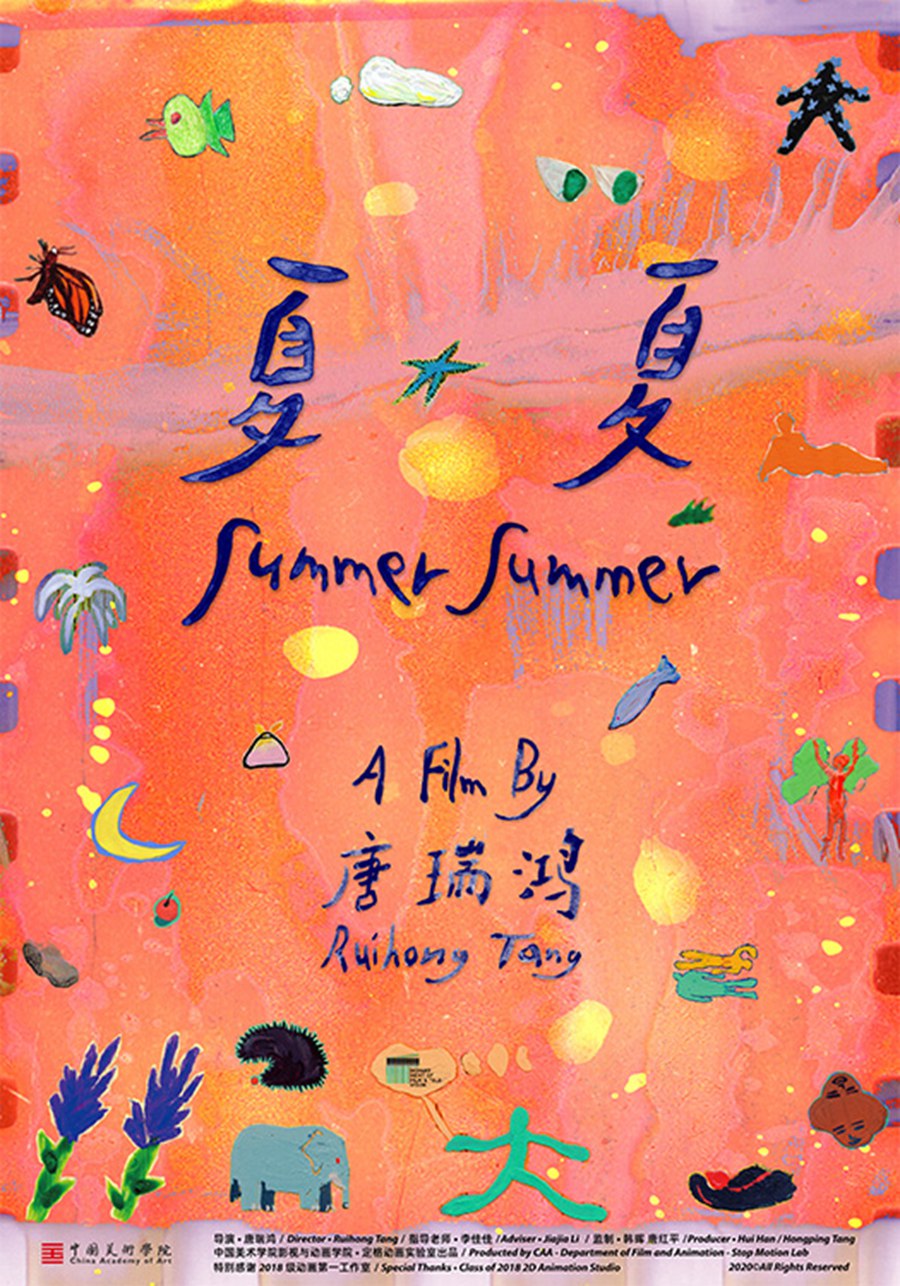 夏夏
Summer Summer
A Film By
唐瑞鸿
Ruihong Tang
中国美術學院
China Academy of Art
导演·唐瑞鸿 / Director · Ruihong Tang / 指导老师·李佳佳 / Adviser · Jiajia Li / 监制·韩晖 唐红平 / Producer · Hui Han / Hongping Tang
中国美术学院影视与动画学院·定格动画实验室出品 / Producted by CAA · Department of Film and Animation · Stop Motion Lab
特别感谢 2018 级动画第一工作室 / Special Thanks · Class of 2018 2D Animation Studio
2020©All Rights Reserved